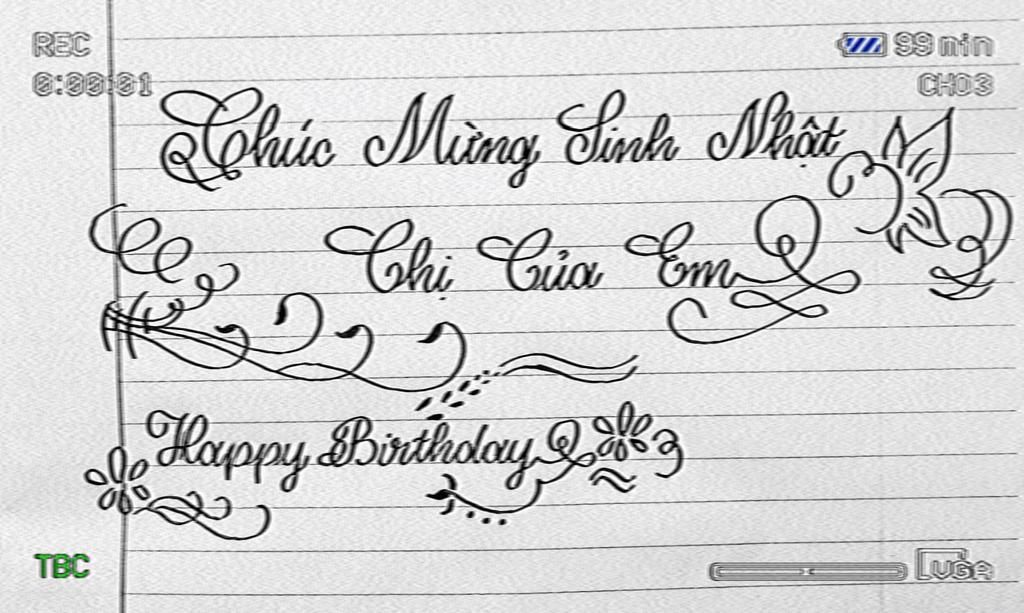 REC
99 min
0:00:01
CH03
Chúc Mừng Sinh Nhật
Chị Của Em
Happy Birthday
TBC
LVGA